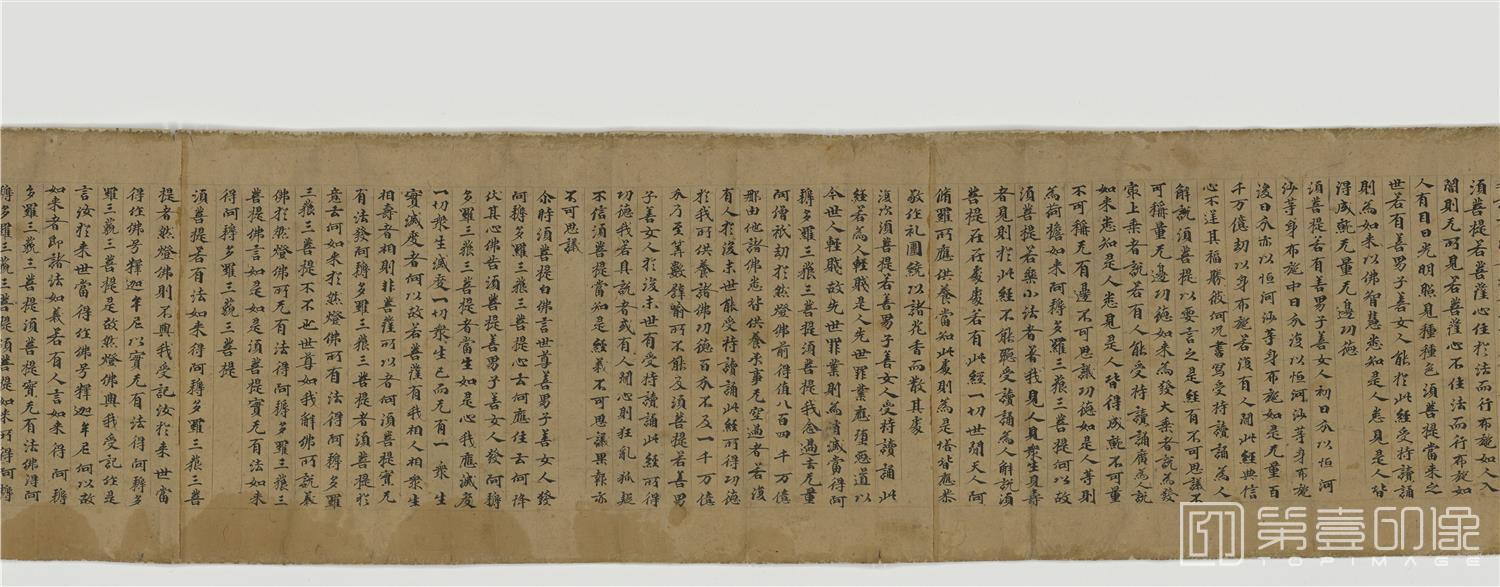 須菩提若菩薩心住於法而行布施如人入
闇則无所見若菩薩心不住法而行布施如
人有目日光明照見種種色須菩提當来之
世若有善男子善女人能於此經受持讀誦
則為如来以佛智慧悉知是人悉見是人皆
得成就无量无邊功德
須菩提若有善男子善女人初日分以恒河
沙等身布施中日分復以恒河沙等身布施
後日分亦以恒河沙等身布施如是无量百
千万億劫以身布施若復有人聞此經典信
心不逆其福勝彼何況書寫受持讀誦為人
解說須菩提以要言之是經有不可思議不
可稱量无邊功德如来為發大乘者說為發
最上乘者說若有人能受持讀誦廣為人說
如来悉知是人悉見是人皆得成就不可量
不可稱无有邊不可思議功德如是人等則
為荷擔如来阿耨多羅三藐三菩提何以故
須菩提若樂小法者著我見人見衆生見壽
者見則於此經不能聽受讀誦為人解說須
菩提在在處處若有此經一切世間天人阿
脩羅所應供養當知此處則為是塔皆應恭
敬作礼圍繞以諸花香而散其處
復次須菩提若善男子善女人受持讀誦此
經若為人輕賤是人先世罪業應墮惡道以
今世人輕賤故先世罪業則為消滅當得阿
耨多羅三藐三菩提須菩提我念過去无量
阿僧祇劫於然燈佛前得值八百四千万億
那由他諸佛悉皆供養承事无空過者若復
有人於後末世能受持讀誦此經所得功德
於我所供養諸佛功德百分不及一千万億
分乃至筭數譬喻所不能及須菩提若善男
子善女人於後末世有受持讀誦此經所得
功德我若具說者或有人聞心則狂亂狐疑
不信須菩提當知是經義不可思議果報亦
不可思議
尒時須菩提白佛言世尊善男子善女人發
阿耨多羅三藐三菩提心云何應住云何降
伏其心佛告須菩提善男子善女人發阿耨
多羅三藐三菩提者當生如是心我應滅度
一切衆生滅度一切衆生已而无有一衆生
實滅度者何以故若菩薩有我相人相衆生
相壽者相則非菩薩所以者何須菩提實无
有法發阿耨多羅三藐三菩提者須菩提於
意云何如来於然燈佛所有法得阿耨多羅
三藐三菩提不不也世尊如我解佛所說義
佛於然燈佛所无有法得阿耨多羅三藐三
菩提佛言如是如是須菩提實无有法如来
得阿耨多羅三藐三菩提
須菩提若有法如来得阿耨多羅三藐三菩
提者然燈佛則不與我受記汝於来世當
得作佛号釋迦牟尼以實无有法得阿耨多
羅三藐三菩提是故然燈佛與我受記作是
言汝於来世當得作佛号釋迦牟尼何以故
如来者即諸法如義若有人言如来得阿耨
多羅三藐三菩提須菩提實无有法佛得阿
耨多羅三藐三菩提須菩提如来所得阿耨
第壹印像
TOPIMAGE